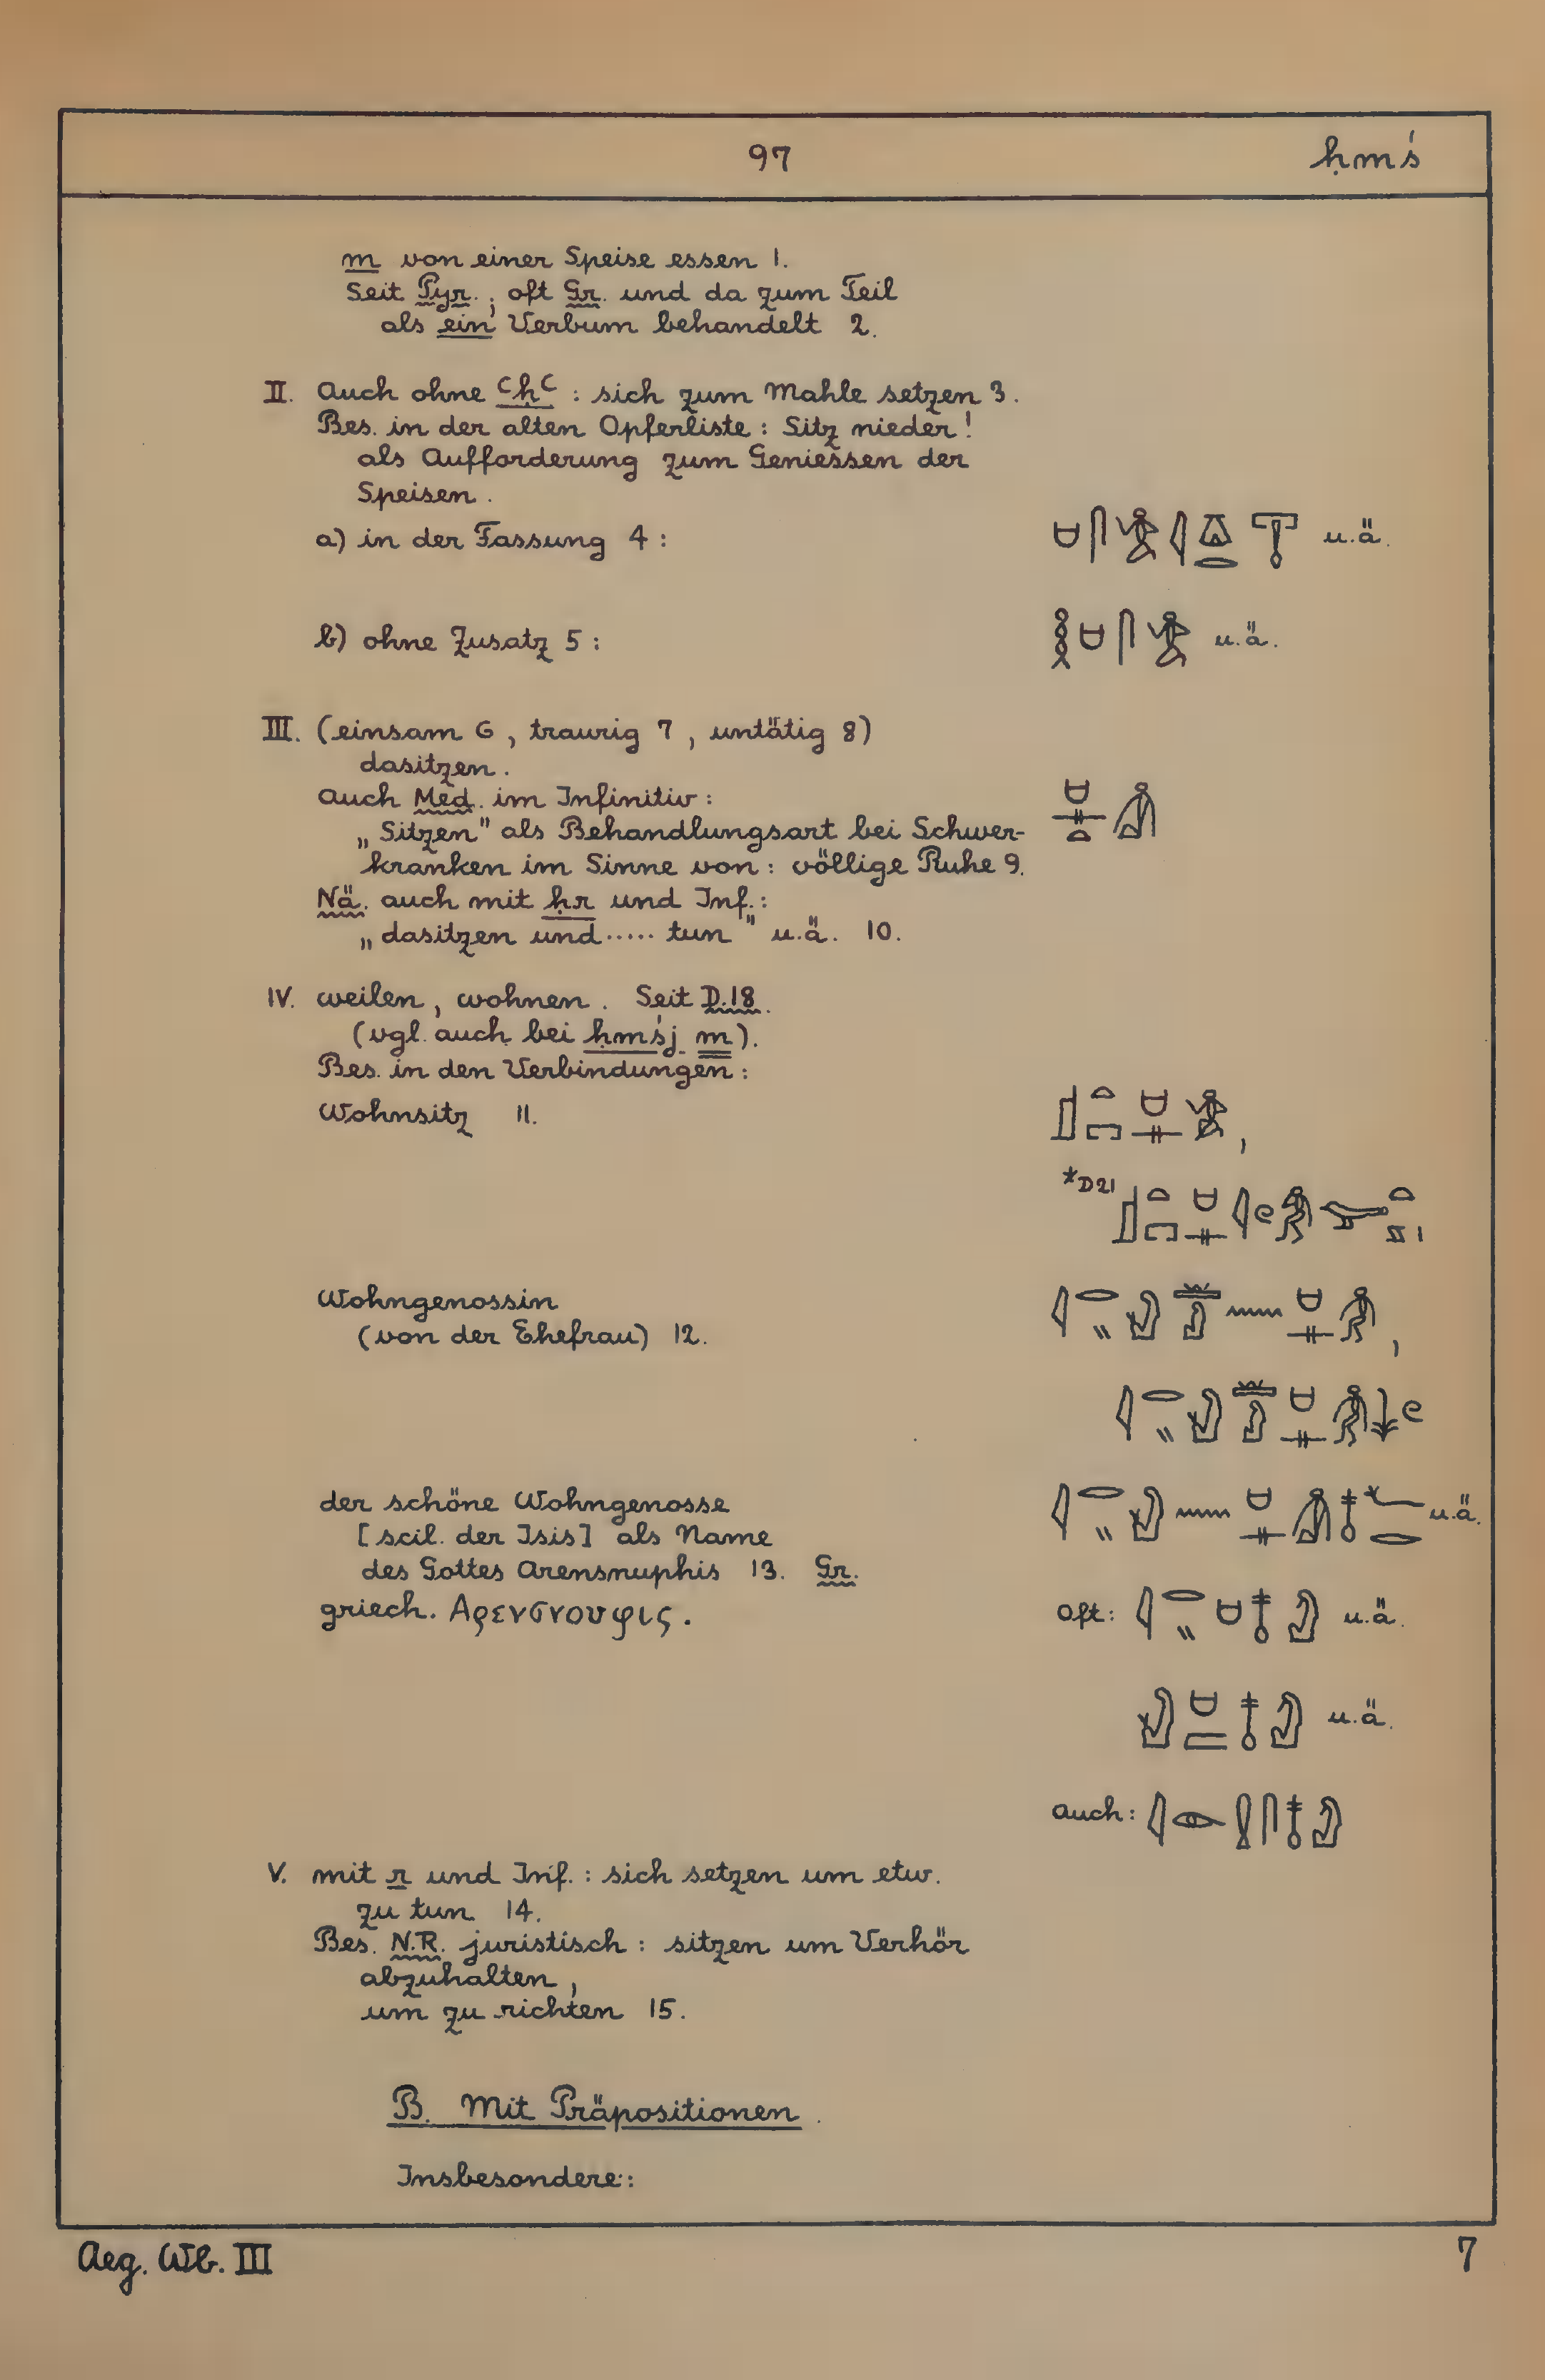 97 ḥmś
m von einer Speise essen 1.
Seit Pyr.; oft Gr. und da zum Teil
als ein Verbum behandelt 2.
II. Auch ohne ꜥḥꜥ: sich zum Mahle setzen 3.
Bes. in der alten Opferliste: Sitz nieder!
als Aufforderung zum Geniessen der
Speisen.
a) in der Fassung 4: u.ä.
b) ohne Zusatz 5: u.ä.
III. (einsam 6, traurig 7, untätig 8)
dasitzen.
Auch Med. im Infinitiv:
„Sitzen" als Behandlungsart bei Schwer-
kranken im Sinne von: völlige Ruhe 9.
Nä. auch mit ḥr und Inf.:
„dasitzen und ..... tun" u.ä. 10.
IV. weilen, wohnen. Seit D.18.
(vgl. auch bei ḥmśj m).
Bes. in den Verbindungen:
Wohnsitz 11. ,
*D21
Wohngenossin
(von der Ehefrau) 12. ,
der schöne Wohngenosse u.ä.
[scil. der Isis] als Name
des Gottes Arensnuphis 13. Gr.
griech. Αρενσνουφις. oft: u.ä.
u.ä.
auch:
V. mit r und Inf.: sich setzen um etw.
zu tun 14.
Bes. N.R. juristisch: sitzen um Verhör
abzuhalten,
um zu richten 15.
B. Mit Präpositionen.
Insbesondere:
Aeg. Wb. III 7